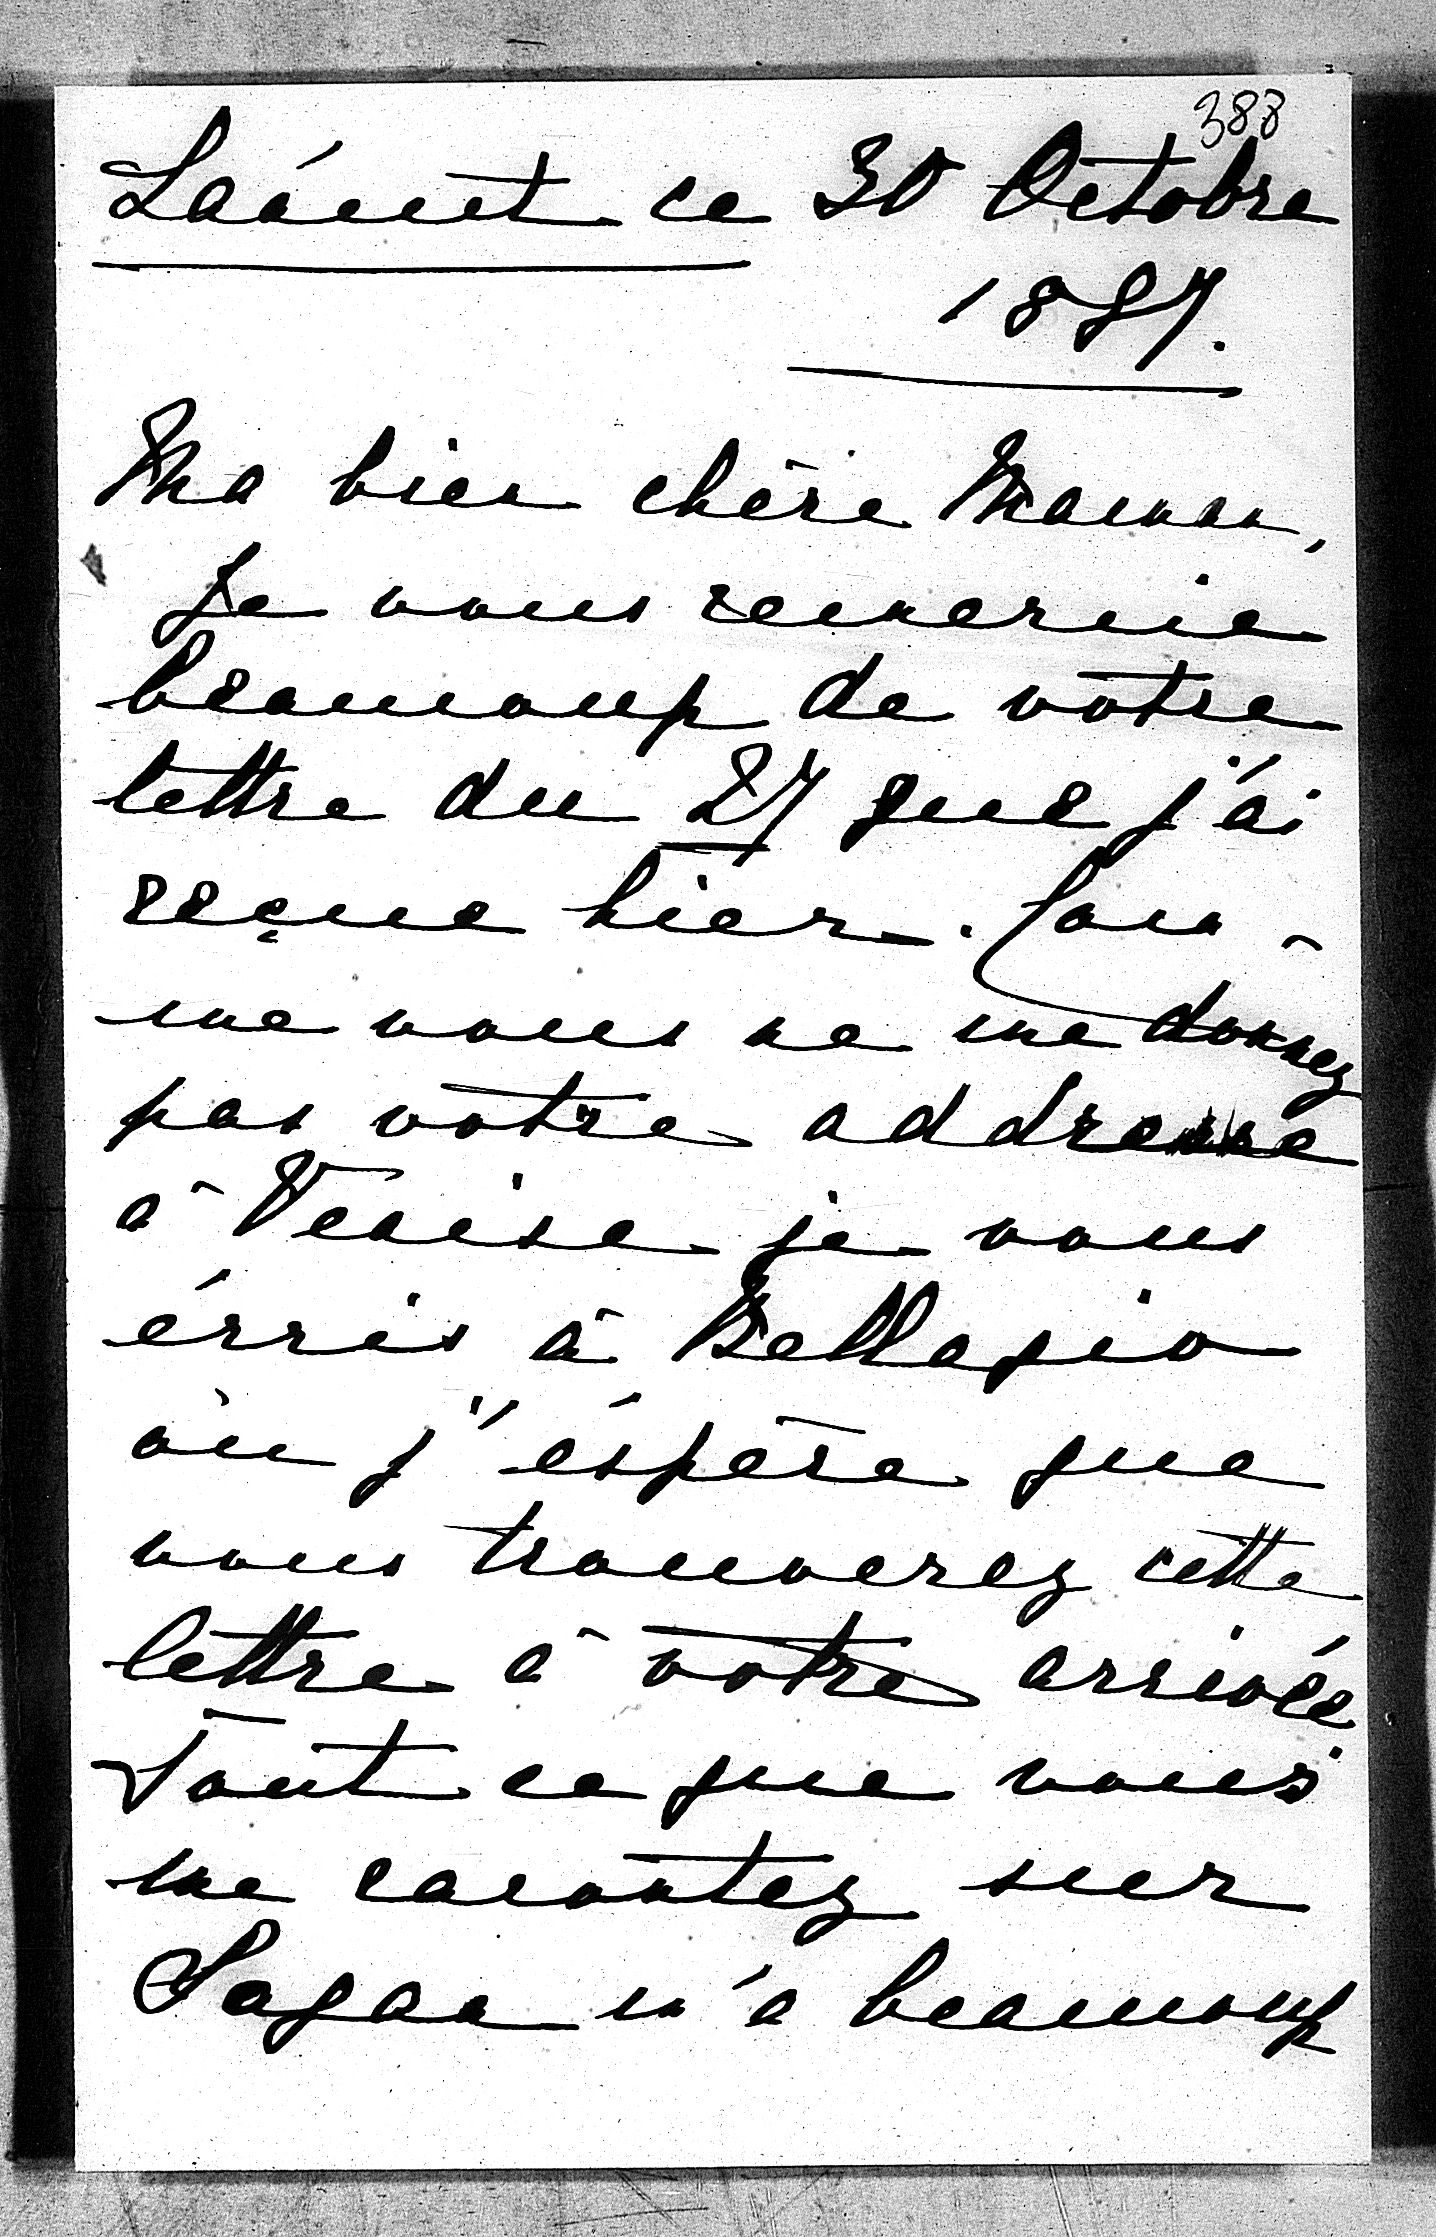 388
Laánut ce 30 Octobre
1887.
Ma bien chère Maman,
Je vous remercie
beaucoup de votre
lettre du 27 que j'ai
reçue hier. Com-
me vous ne me donnez
pas votre addresse
à Venise je vous
écris à Bellagio
où j'éspère que
vous trouverez cette
lettre à votre arrivée
Tout ce que vous
me racontez sur
Sagan m'a beaucoup